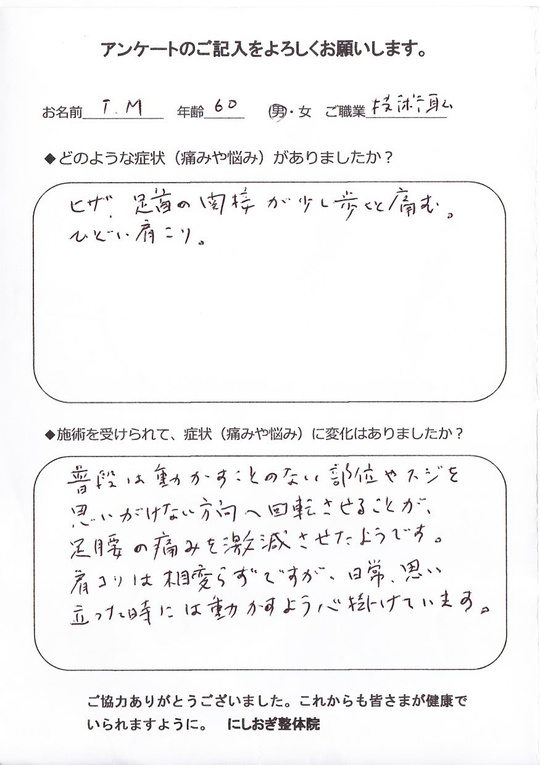 アンケートのご記入をよろしくお願いします。
お名前 T.M 年齢 60 男・女 ご職業 技術職
◆どのような症状（痛みや悩み）がありましたか？
ヒザ、足首の関接が少し歩くと痛む。
ひどい肩こり。
◆施術を受けられて、症状（痛みや悩み）に変化はありましたか？
普段は動かすことのない部位やスジを
思いがけない方向へ回転させることが、
足腰の痛みを激減させたようです。
肩こりは相変らずですが、日常、思い
立った時には動かすよう心掛けています。
ご協力ありがとうございました。これからも皆さまが健康で
いられますように。 にしおぎ整体院